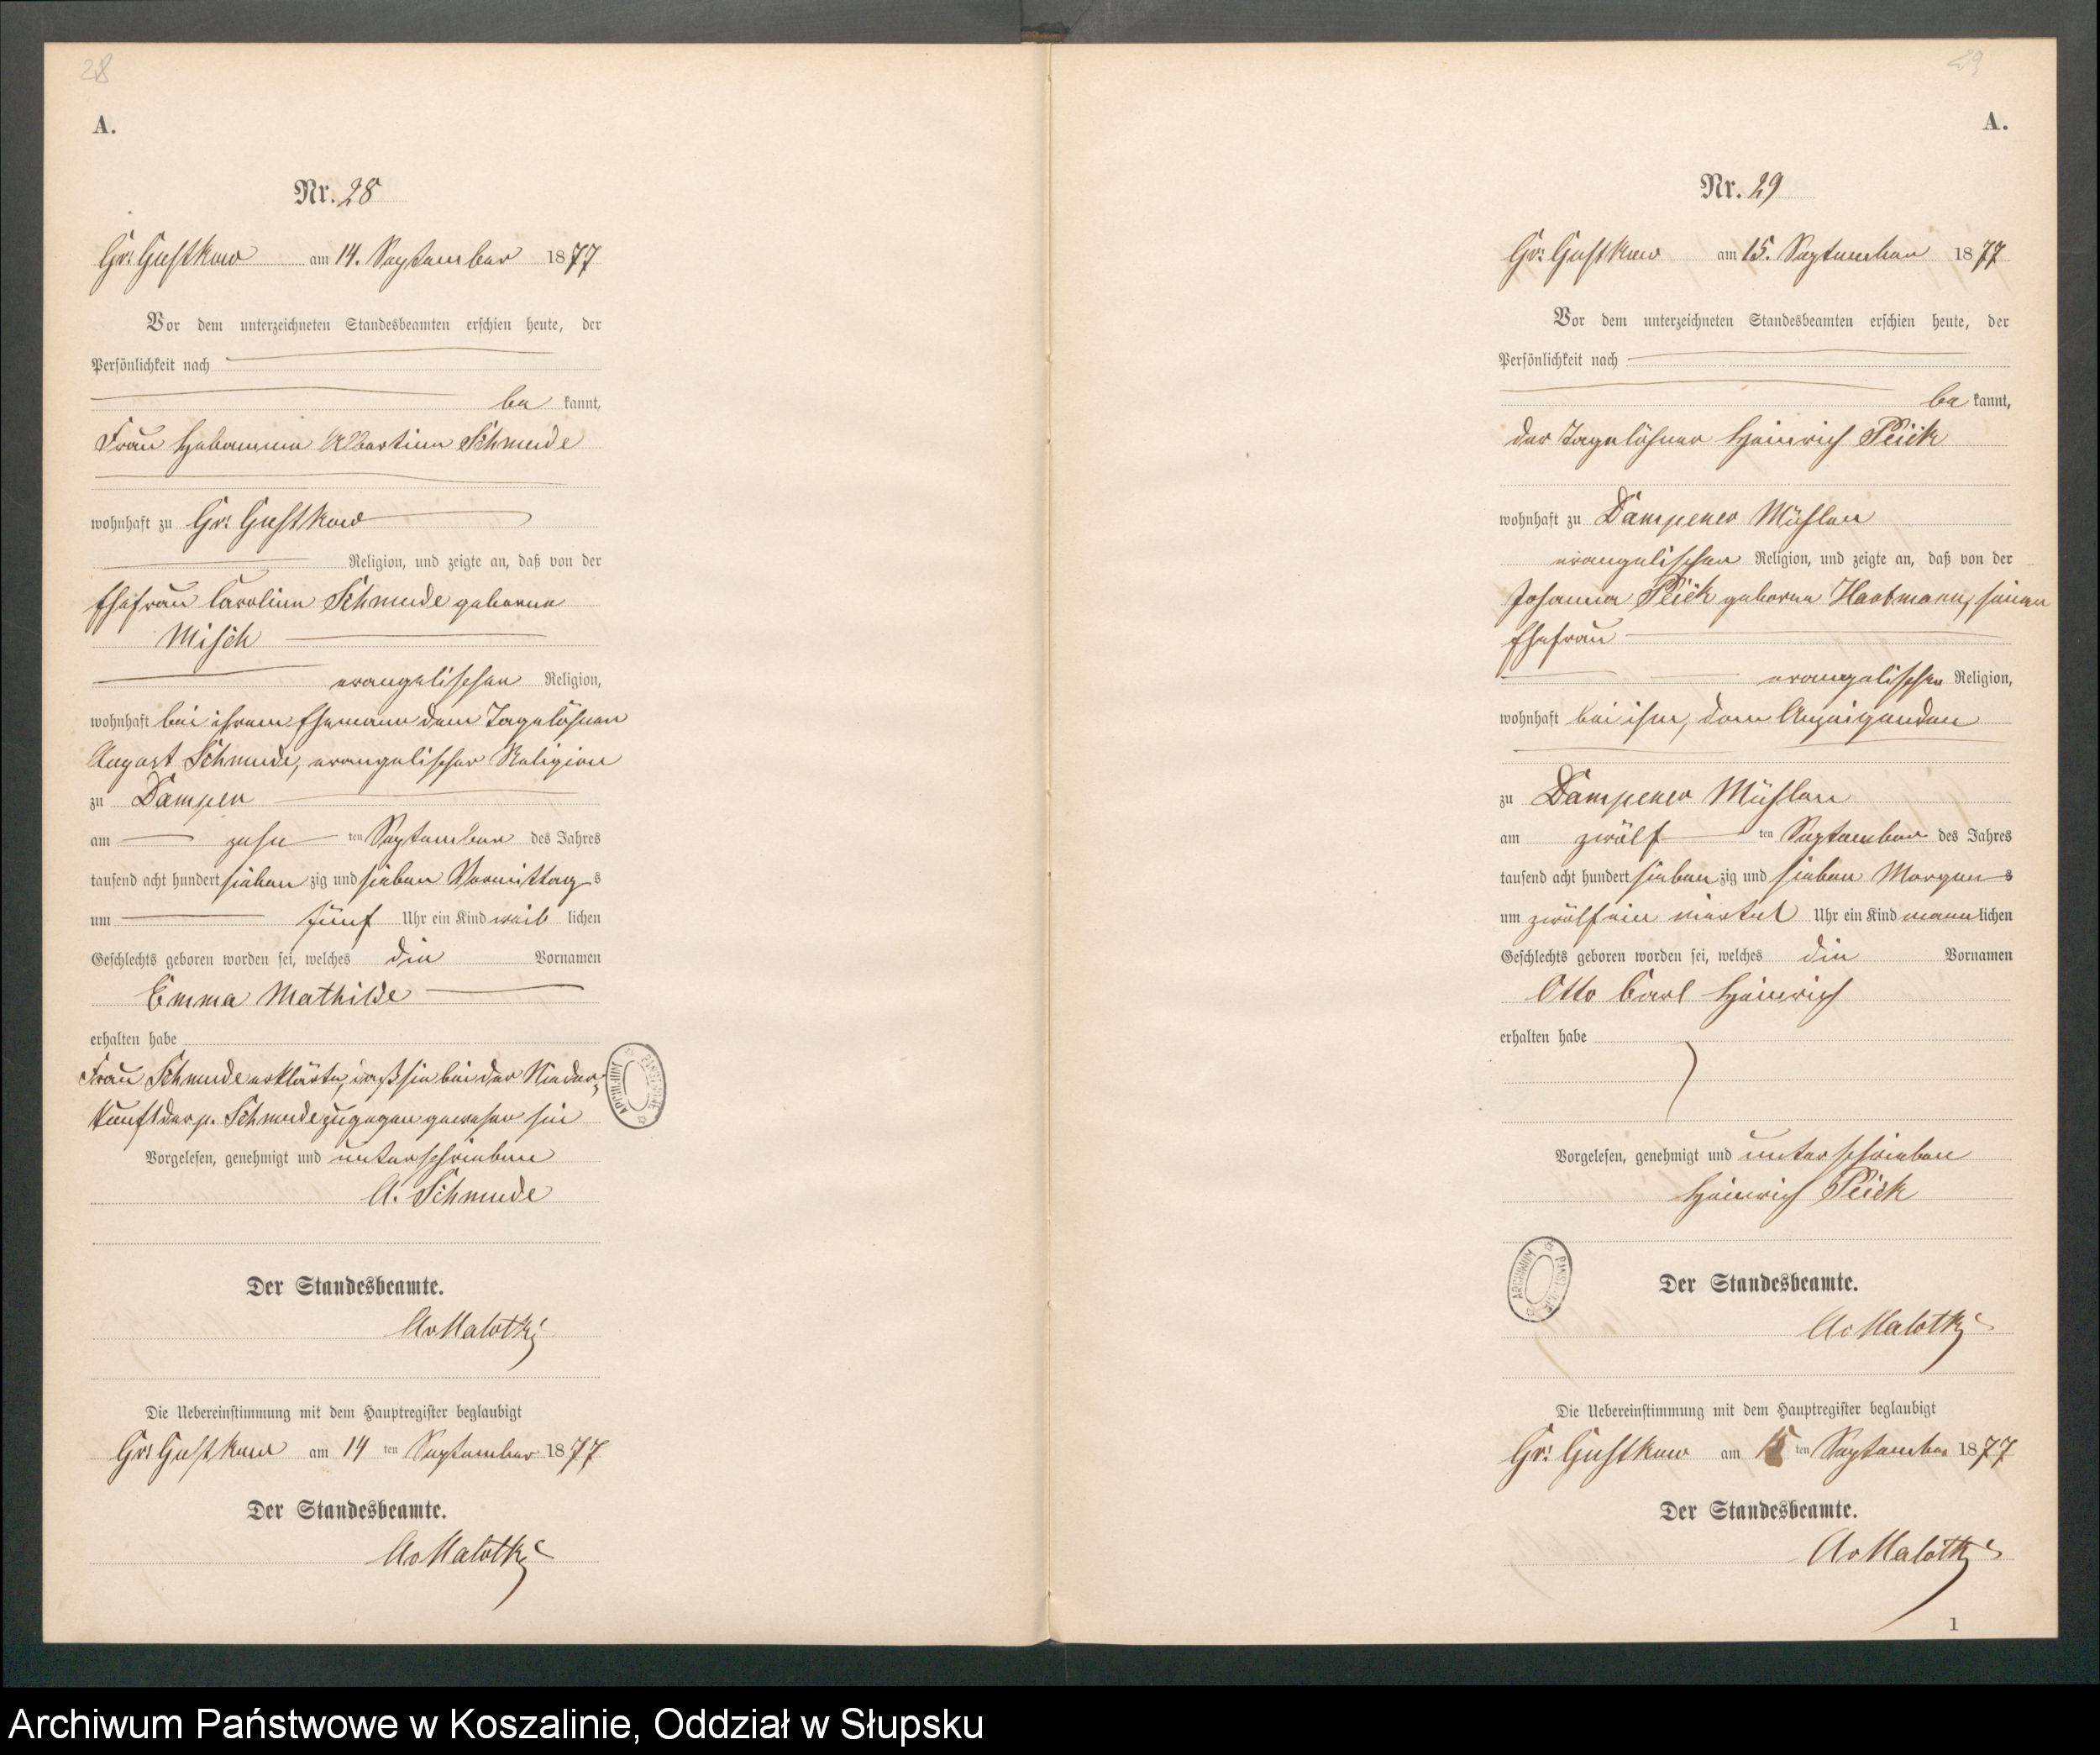 28
A.
Nr. 28
Gr: Gustkow am 14. September 1877
Vor dem unterzeichneten Standesbeamten erschien heute, der
Persönlichkeit nach
be kannt,
Frau Hebamme Albertine Schmude
wohnhaft zu Gr: Gustkow
Religion, und zeigte an, daß von der
Ehefrau Caroline Schmude geborene
Misch
evangelischen Religion,
wohnhaft bei ihrem Ehemann dem Tagelöhner
August Schmude, evangelischer Religion
zu Dampen
am zehn ten September des Jahres
tausend acht hundert sieben zig und sieben Vormittag s
um fünf Uhr ein Kind weib lichen
Geschlechts geboren worden sei, welches die Vornamen
Emma Mathilde
erhalten habe
Frau Schmude erklärte, daß sie bei der Nieder-
kunft der p. Schmude zugegen gewesen sei
Vorgelesen, genehmigt und unterschrieben
A. Schmude
Der Standesbeamte.
AvMalotki
Die Uebereinstimmung mit dem Hauptregister beglaubigt
Gr: Gustkow am 14 ten September 1877
Der Standesbeamte.
AvMalotki
ARCHIWUM PAŃSTWOWE
29
A.
Nr. 29
Gr: Gustkow am 15. September 1877
Vor dem unterzeichneten Standesbeamten erschien heute, der
Persönlichkeit nach
be kannt,
der Tagelöhner Heinrich Peick
wohnhaft zu Dampener Mühlen
evangelischen Religion, und zeigte an, daß von der
Johanna Peick geborene Hartmann, seiner
Ehefrau
evangelischen Religion,
wohnhaft bei ihm, dem Anzeigenden
zu Dampener Mühlen
am zwölf ten September des Jahres
tausend acht hundert sieben zig und sieben Morgen s
um zwölf ein viertel Uhr ein Kind männ lichen
Geschlechts geboren worden sei, welches die Vornamen
Otto Carl Heinrich
erhalten habe
Vorgelesen, genehmigt und unterschrieben
Heinrich Peick
ARCHIWUM PAŃSTWOWE
Der Standesbeamte.
AvMalotki
Die Uebereinstimmung mit dem Hauptregister beglaubigt
Gr: Gustkow am 15 ten September 1877
Der Standesbeamte.
AvMalotki
1
Archiwum Państwowe w Koszalinie, Oddział w Słupsku